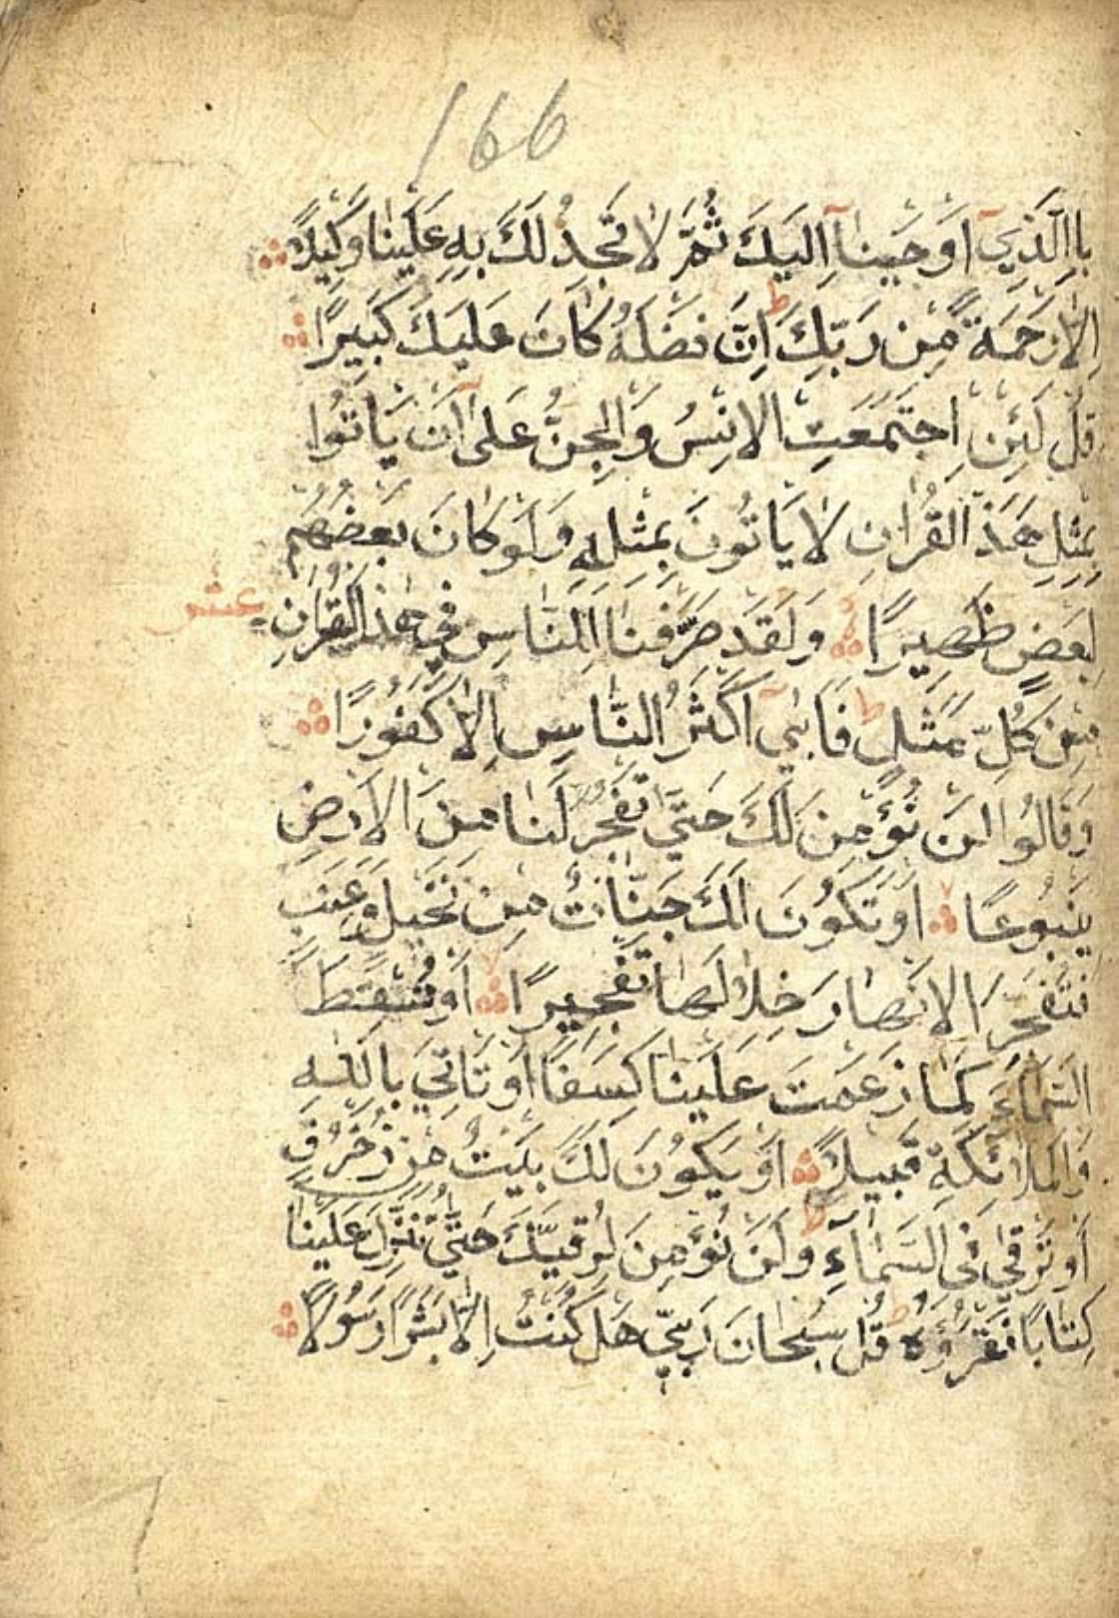 166
بِالَّذِيٓ اَوْحَيْنَآ اِلَيْكَ ثُمَّ لَا تَجِدُ لَكَ بِهِ عَلَيْنَا وَكِيلًا
اِلَّا رَحْمَةً مِنْ رَبِّكَ ط اِنَّ فَضْلَهُ كَانَ عَلَيْكَ كَبِيرًا
قُلْ لَئِنِ اجْتَمَعَتِ الْاِنْسُ وَالْجِنُّ عَلٰٓى اَنْ يَاْتُوا
بِمِثْلِ هٰذَا الْقُرْاٰنِ لَا يَاْتُونَ بِمِثْلِهِ وَلَوْ كَانَ بَعْضُهُمْ
لِبَعْضٍ ظَهِيرًا وَلَقَدْ صَرَّفْنَا لِلنَّاسِ فِي هٰذَا الْقُرْاٰنِ عشر
مِنْ كُلِّ مَثَلٍ ط فَاَبٰىٓ اَكْثَرُ النَّاسِ اِلَّا كُفُورًا
وَقَالُوا لَنْ نُؤْمِنَ لَكَ حَتّٰى تَفْجُرَ لَنَا مِنَ الْاَرْضِ
يَنْبُوعًا لا اَوْ تَكُونَ لَكَ جَنَّاتٌ مِنْ نَخِيلٍ وَعِنَبٍ
فَتُفَجِّرَ الْاَنْهَارَ خِلَالَهَا تَفْجِيرًا لا اَوْ تُسْقِطَ
السَّمَآءَ كَمَا زَعَمْتَ عَلَيْنَا كِسَفًا اَوْ تَاْتِيَ بِاللّٰهِ
وَالْمَلَائِكَةِ قَبِيلًا اَوْ يَكُونَ لَكَ بَيْتٌ مِنْ زُخْرُفٍ
اَوْ تَرْقٰى فِي السَّمَآءِ ط وَلَنْ نُؤْمِنَ لِرُقِيِّكَ حَتّٰى تُنَزِّلَ عَلَيْنَا
كِتَابًا نَقْرَؤُهُ ط قُلْ سُبْحَانَ رَبِّي هَلْ كُنْتُ اِلَّا بَشَرًا رَسُولًا